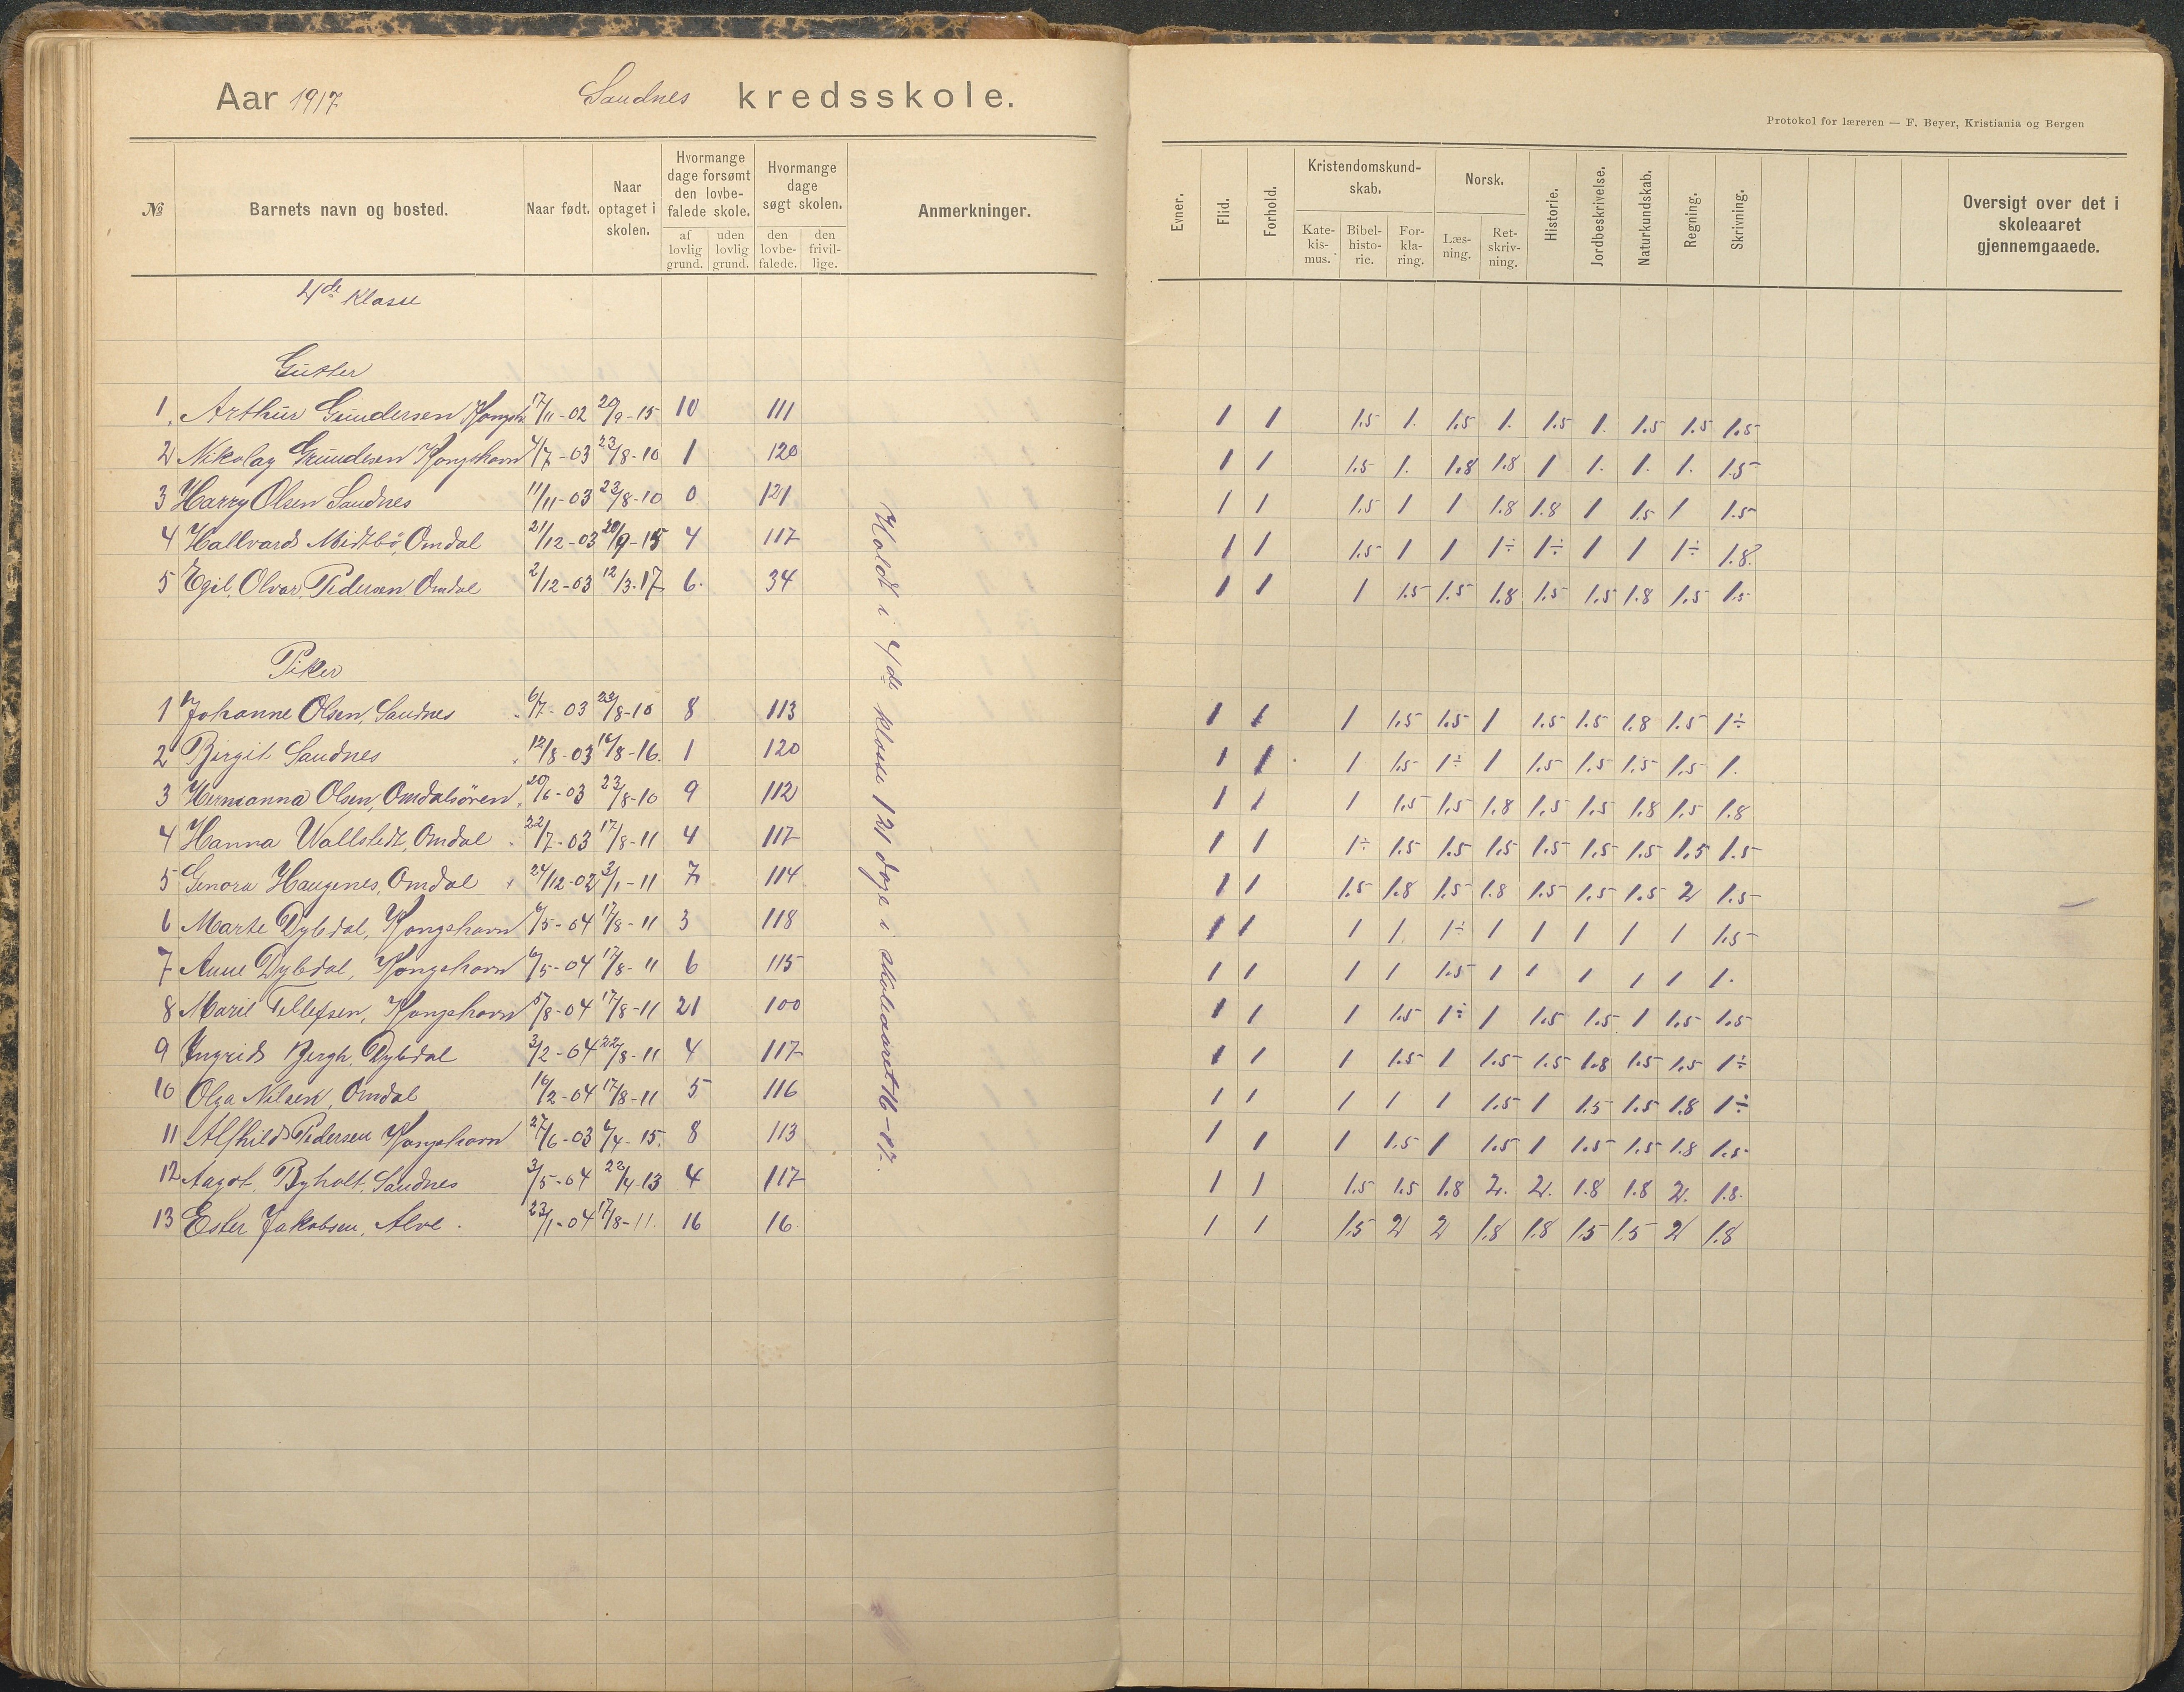 Aar 1917 Sandnes kredsskole.
Protokol for læreren — F. Beyer, Kristiania og Bergen
№ Barnets navn og bosted. Naar født. Naar optaget i skolen. Hvormange dage forsømt den lovbefalede skole. af lovlig grund. uden lovlig grund. Hvormange dage søgt skolen. den lovbefalede. den frivillige. Anmerkninger.
Evner. Flid. Forhold. Kristendomskundskab. Katekismus. Bibelhistorie. Forklaring. Norsk. Læsning. Retskrivning. Historie. Jordbeskrivelse. Naturkundskab. Regning. Skrivning. Oversigt over det i skoleaaret gjennemgaaede.
4de Klasse
Gutter
1. Arthur Gundersen Kongsh. 17/11-02 20/9-15 10 111 1 1 1.5 1. 1.5 1. 1.5 1. 1.5 1.5 1.5
2 Nikolay Gundersen Kongshavn 4/7-03 23/8-10 1 120 1 1 1.5 1. 1.8 1.8 1 1. 1. 1. 1.5
3 Harry Olsen Sandnes 11/11-03 23/8-10 0 121 1 1 1.5 1 1 1.8 1.8 1 1.5 1 1.5
4 Hallvard Midtbö, Omdal 21/12-03 20/9-15 4 117 1 1 1.5 1 1 1÷ 1÷ 1 1 1÷ 1.8.
5 Egil. Olvar. Pedersen Omdal 2/12-03 12/3-17 6. 34 1 1 1 1.5 1.5 1.8 1.5 1.5 1.8 1.5 1.5
Piker
1 Johanne Olsen, Sandnes 6/7-03 23/8-10 8 113 1 1 1 1.5 1.5 1 1.5 1.5 1.8 1.5 1÷
2 Birgit Sandnes 12/8-03 /8-16. 1 120 1 1 1 1.5 1÷ 1 1.5 1.5 1.5 1.5 1.
3 Hermanna Olsen, Omdalsören, 20/6-03 23/8-10 9 112 1 1 1 1.5 1.5 1.8 1.5 1.5 1.8 1.5 1.8
4 Hanna Wallstedt, Omdal 22/7-03 17/8-11 4 117 1 1 1÷ 1.5 1.5 1.5 1.5 1.5 1.5 1.5 1.5
5 Genora Haugenes, Omdal 24/12-02 3/1-11 7 114 1 1 1.5 1.8 1.5 1.8 1.5 1.5 1.5 2 1.5
6 Marte Dybdal, Kongshavn 6/5-04 17/8-11 3 118 1 1 1 1 1÷ 1 1 1 1 1 1.5
7 Anne Dybdal, Kongshavn 6/5-04 17/8-11 6 115 1 1 1 1 1.5 1 1 1 1 1 1.
8 Marie Tellefsen, Kongshavn 5/8-04 17/8-11 21 100 1 1 1 1.5 1÷ 1 1.5 1.5 1 1.5 1.5
9 Ingrid Bergh. Dybdal 3/2-04 22/8-11 4 117 1 1 1 1.5 1 1.5 1.5 1.8 1.5 1.5 1÷
10 Olga Nilsen, Omdal 16/2-04 17/8-11 5 116 1 1 1 1 1 1.5 1 1.5 1.5 1.8 1÷
11 Alfhild Pedersen Kongshavn 27/6-03 /4-15. 8 113 1 1 1 1.5 1 1.5 1 1.5 1.5 1.8 1.5
12 Aagot. Byholt, Sandnes 3/5-04 22/4-13 4 117 1 1 1.5 1.5 1.8 2. 2. 1.8 1.8 2. 1.8.
13 Ester Jakobsen, Alve. 23/1-04 17/8-11. 16 16 1 1 1.5 2 2 1.8 1.8 1.5 1.5 2 1.8
Holdt i 4de klasse 121 dage i skoleaaret 16-17.